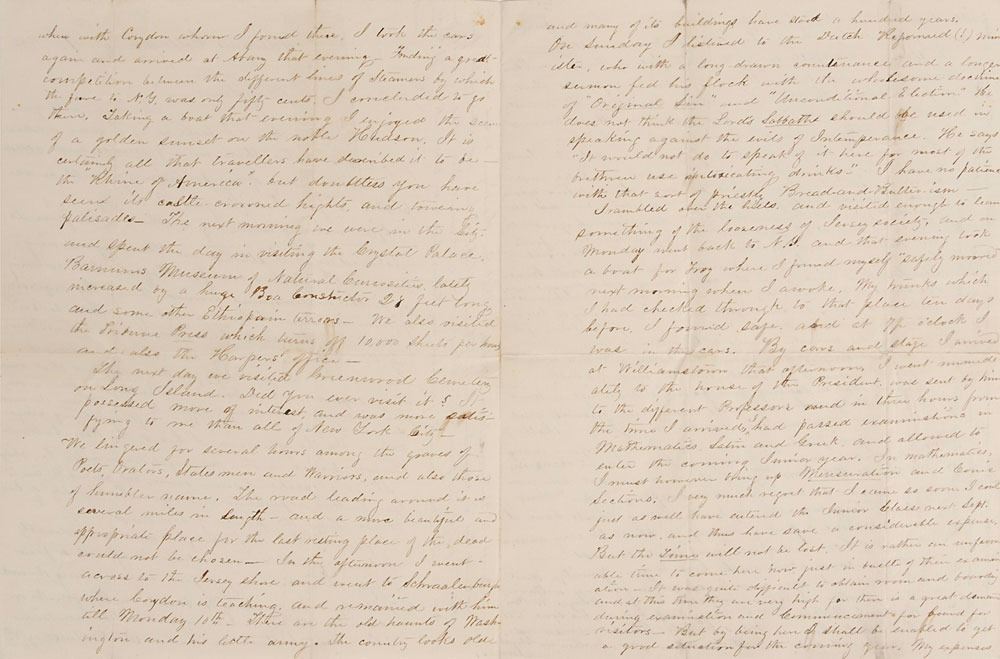 when with Corydon whom I found there. I took the cars
again and arrived at Albany that evening. Finding a great
competition between the different lines of Steamers by which
the fare to N.Y. was only fifty cents, I concluded to go
there. Taking a boat that evening I enjoyed the scene
of a golden sunset on the noble Hudson. It is
certainly all that travellers have described it to be—
the "Rhine of America". but doubtless you have
seen its castle-crowned hights, and towering
palisades— The next morning we were in the City
and spent the day in visiting the Crystal Palace,
Barnums Museum of Natural Curiosities, lately
increased by a huge Boa Constrictor 28 feet long
and some other Ethiopian terrors— We also visited
the Tribune Press which turns off 10,000 sheets per hour
and also the Harpers' office—
The next day we visited Greenwood Cemetery
on Long Island. Did you ever visit it? It
possessed more of interest, and was more satis-
fying to me than all of New York City—
We lingered for several hours among the graves of
Poets, Orators, Statesmen and Warriors, and also those
of humbler name. The road leading around it is
several miles in length— and a more beautiful and
appropriate place for the last resting place of the dead
could not be chosen— In the afternoon I went
across to the Jersey shore and went to Schraalenburgh
where Corydon is teaching, and remained with him
till Monday 10th— These are the old haunts of Wash-
ington and his little army. The country looks olde
and many of its buildings have stood a hundred years.
On Sunday I listened to the Dutch Reformed (!) min
ister, who with a long-drawn countenance and a longer
sermon fed his flock with the wholesome doctrine
of "Original Sin" and "Unconditional Election" He
does not think the Lords Sabbaths should be used in
speaking against the evils of Intemperance. He says
"It would not do to speak of it here for most of the
brethren use intoxicating drinks." I have no patience
with that sort of priestly Bread-and-Butter-ism—
I rambled over the hills, and visited enough to learn
something of the looseness of Jersey society, and on
Monday went back to N.Y. and that evening took
a boat for Troy where I found myself "safely moored"
next morning when I awoke. My trunks which
I had checked through to that place ten days
before, I found safe, and at 7½ o'clock I
was in the cars. By cars and stage I arrived
at Williamstown that afternoon, I went immedi
ately to the house of the President, was sent by him
to the different Professors and in three hours from
the time I arrived, had passed examinations in
Mathematics Latin and Greek, and allowed to
enter the coming Junior year. In mathematics,
I must however bring up Mensuration and Conic
Sections. I very much regret that I came so soon I could
just as well have entered the Junior Class next Sept.
as now, and thus have save a considerable expense,
But the Time will not be lost. It is rather an unfavor
able time to come here now just in bustle of their examin
ation— It was quite difficult to obtain room and board,
and at this time they are very high for there is a great demand
during examination and Commencement for board for
visitors— But by being here I shall be enabled to get
a good situation for the coming year. My expenses